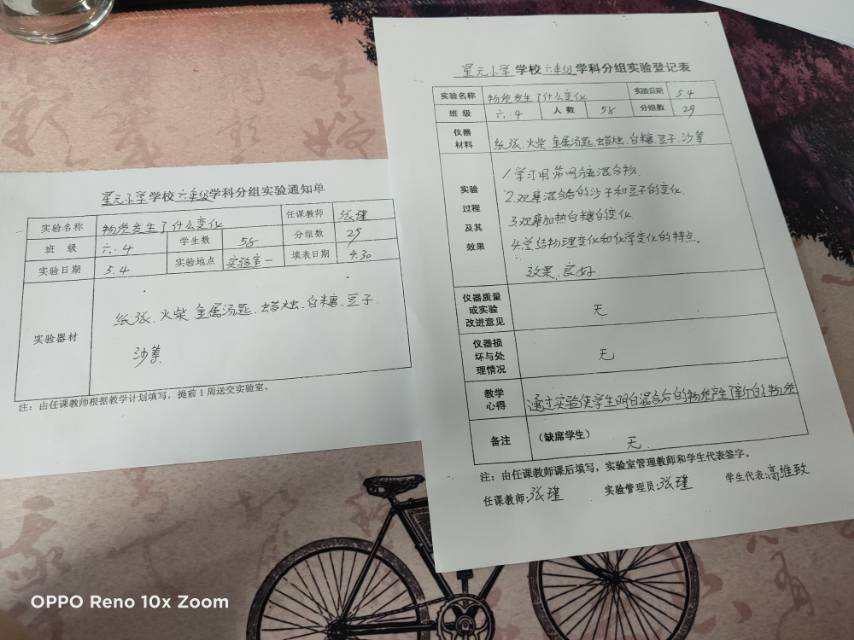 星元小学学校六年级学科分组实验通知单
实验名称 物质发生了什么变化 任课教师 张瑾
班 级 六.4 学生数 58 分组数 29
实验日期 5.4 实验地点 实验室一 填表日期 4.30
实验器材 纸张、火柴、金属汤匙、蜡烛、白糖、豆子、
沙等
注：由任课教师根据教学计划填写，提前1周送交实验室。
星元小学学校六年级学科分组实验登记表
实验名称 物质发生了什么变化 实验日期 5.4
班 级 六.4 人 数 58 分组数 29
仪器
材料
纸张、火柴、金属汤匙、蜡烛、白糖、豆子、沙等
实验
过程
及其
效果
2.观察混合后的沙子和豆子的变化
3.观察加热白糖的变化
4.总结物理变化和化学变化的特点.
效果：良好
仪器质量
或实验
改进意见
无
仪器损
坏与处
理情况
无
教学
心得
通过实验使学生明白混合后的物质产生了新的物质
备注 (缺席学生) 无
注：由任课教师课后填写，实验室管理教师和学生代表签字。
任课教师:张瑾 实验管理员:张瑾 学生代表:高雅致
OPPO Reno 10x Zoom